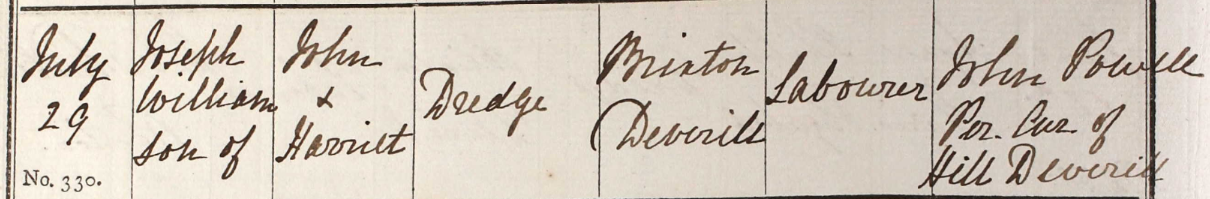 July
29
No. 330.
Joseph
William
son of
John
&
Harriet
Dredge
Brixton
Deverill
Labourer
John Powell
Per. Cur. of
Hill Deverill